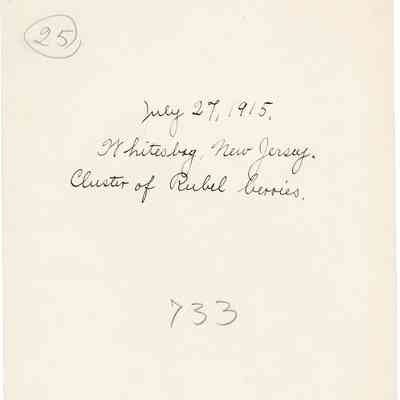 25
July 27, 1915.
Whitesbog, New Jersey.
Cluster of Rubel berries.
733